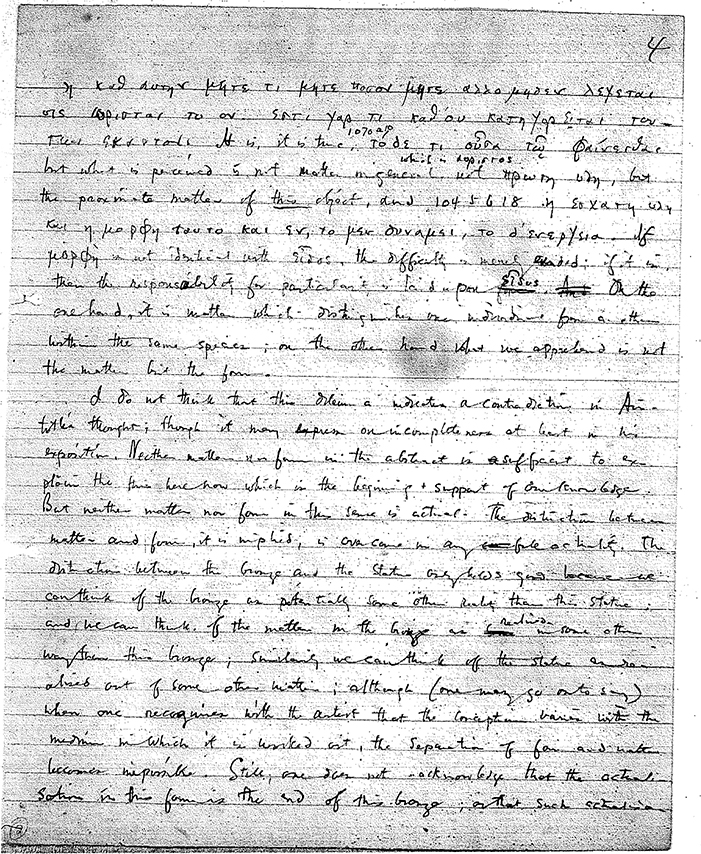 4
η καθ αυτην μητε τι μητε ποσον μητε αλλο μηθεν λεγεται
οις ωρισται το ον. εστι γαρ τι καθ ου κατηγορειται τον-
των εκαστον. It is, it is true, 1070 a9 τοδε τι ουσα τω φαινεσθαι
but what is perceived is not matter in general, which is αοριστος. not πρωτη υλη, but
the proximate matter of this object, and 1045 b 18 η εσχατη υλη
και η μορφη ταυτο και εν, το μεν δυναμει, το δ' ενεργεια. If
μορφη is not identical with ειδος, the difficulty is merely evaded; if it is,
then the responsibility for particulars is laid upon ειδος. On the
one hand, it is matter which distinguishes one individual from another
within the same species; on the other hand what we apprehend is not
the matter but the form.
I do not think that this dilemma indicates a contradiction in Aris-
totle's thought; though it may express an incompleteness at least in his
exposition. Neither matter nor form in the abstract is sufficient to ex-
plain the this here now which is the beginning + support of our knowledge.
But neither matter nor form in this sense is actual. The distinction between
matter and form, it is implied, is overcome in any full actuality. The
distinction between the bronze and the statue only holds good because we
can think of the bronze as potentially some other reality than this statue;
and we can think of the matter in the bronze as realised in some other
way than this bronze; similarly we can think of the statue as re-
alised out of some other matter; although (one may go on to say)
when one recognises with the artist that the conception varies with the
medium in which it is worked out, the separation of form and matter
becomes impossible. Still, one does not acknowledge that the actuali-
sation in this form is the end of this bronze; or that such actualisa